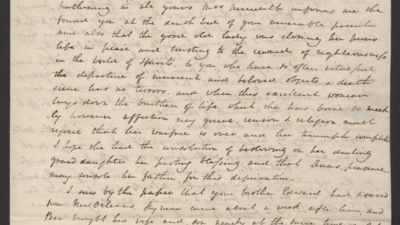 in ale yours Miss Meredith informs me she
found you at the death bed of your venerable parent
and also that the good old lady was closing her pious
life in peace, and trusting to the reward of righteousness
in the World of Spirits, to you who have so often witnessed
the departure of innocent and beloved objects, a death
scene has no terrors, and when this excellent woman
lays down the burthen of life which she has borne so meek
ly however affection may grieve, reason & religion must
rejoice that her warfare is over and her triumph complete
I hope she had the consolation of bestowing on her darling
grand daughter her parting blessing and that Anna's presence
may console her father for this deprivation.
I saw by the papers that your brother Edward had
New Orleans, came about a week after him, and
Ben brought his wife and son nearly at the same time